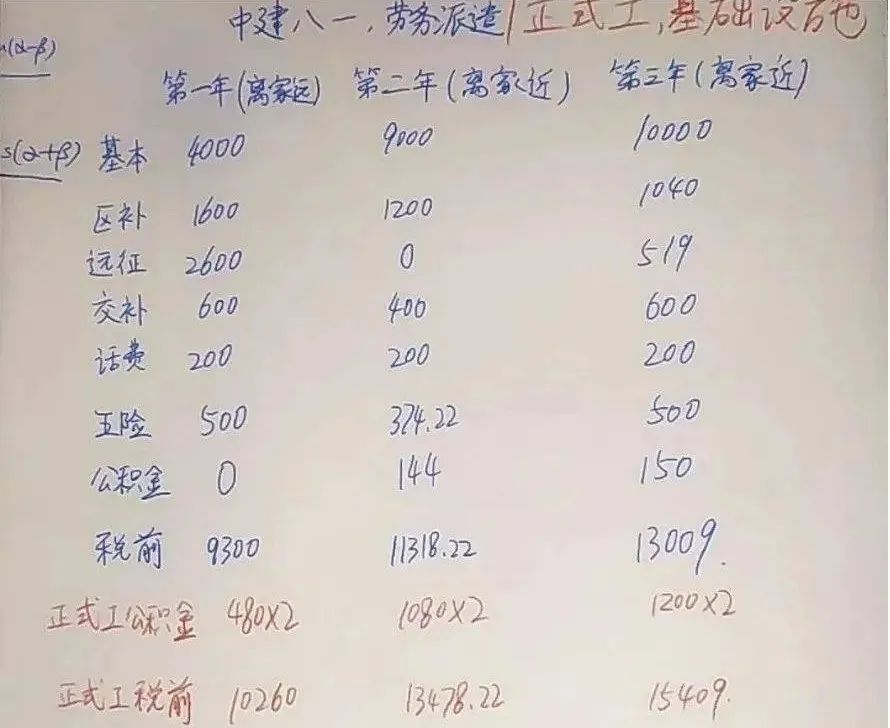 中建八一，劳务派遣/正式工，基础设施也
(α-β)
第一年(离家远) 第二年(离家近) 第三年(离家近)
s(α+β)
基本 4000 9000 10000
区补 1600 1200 1040
远征 2600 0 519
交补 600 400 600
话费 200 200 200
五险 500 374.22 500
公积金 0 144 150
税前 9300 11318.22 13009.
正式工公积金 480×2 1080×2 1200×2
正式工税前 10260 13478.22 15409.